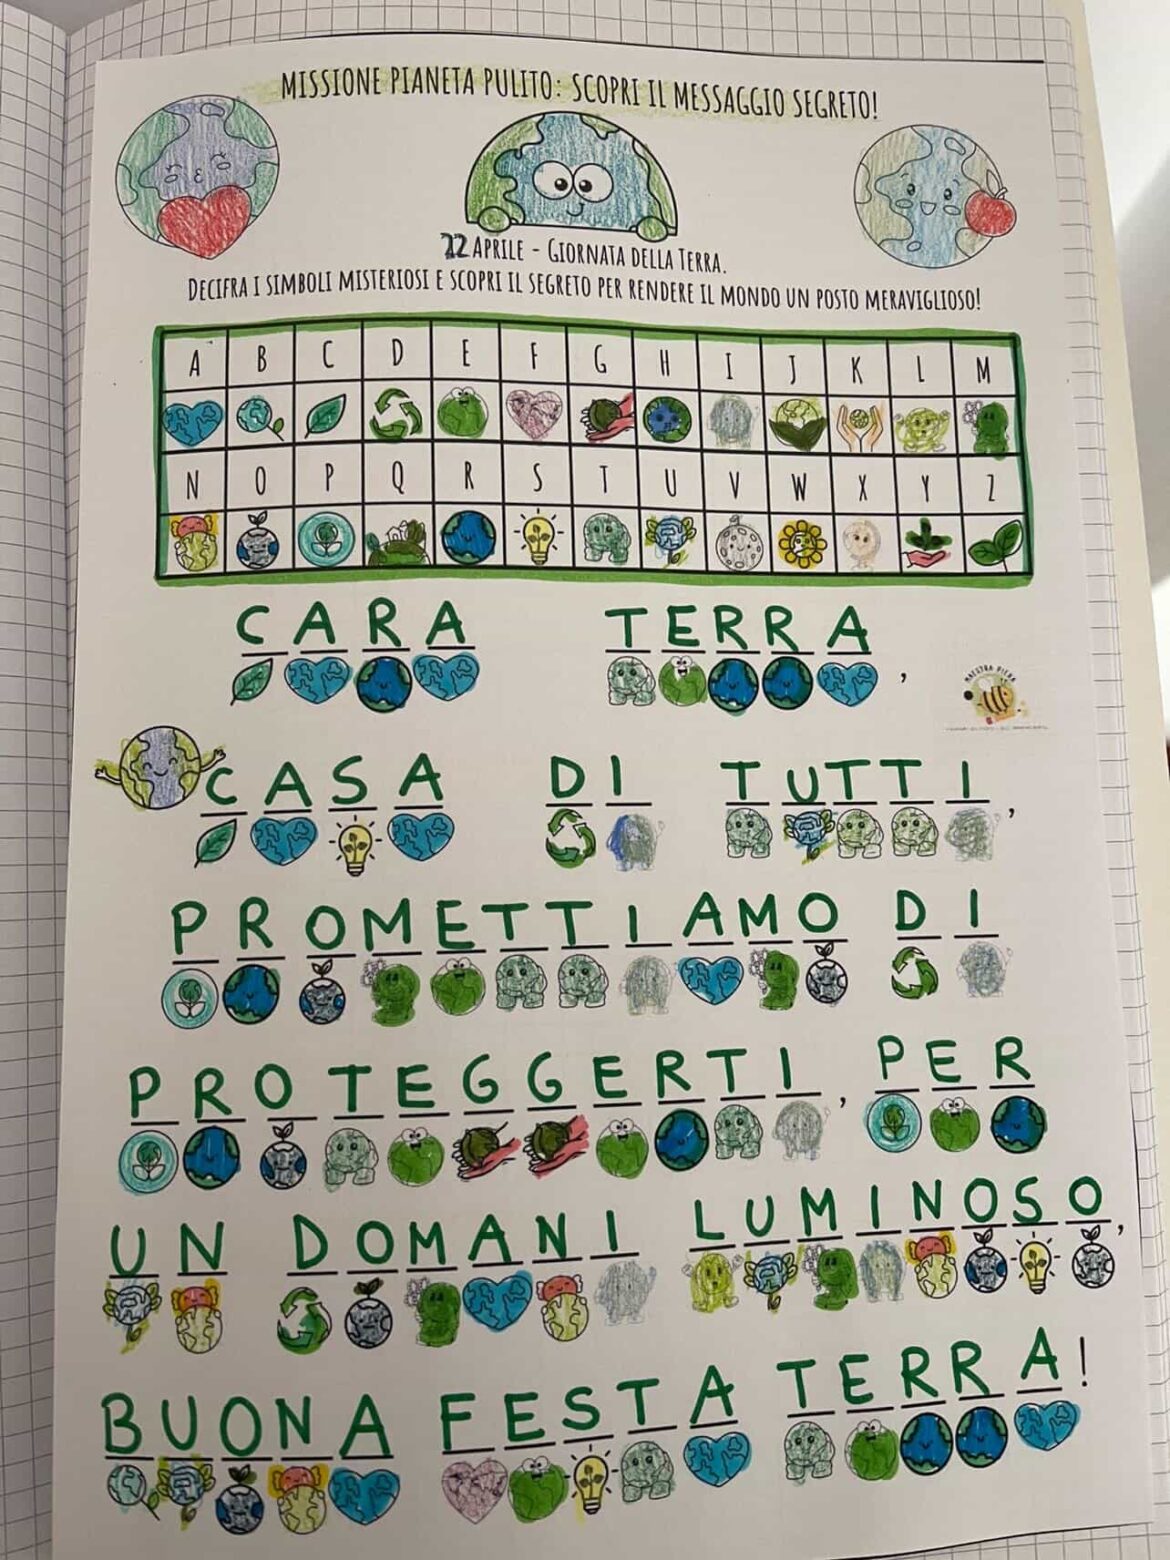 MISSIONE PIANETA PULITO: SCOPRI IL MESSAGGIO SEGRETO!
22 APRILE - GIORNATA DELLA TERRA.
DECIFRA I SIMBOLI MISTERIOSI E SCOPRI IL SEGRETO PER RENDERE IL MONDO UN POSTO MERAVIGLIOSO!
A B C D E F G H I J K L M
N O P Q R S T U V W X Y Z
CARA TERRA,
MAESTRA PIERA
CASA DI TUTTI,
PROMETTIAMO DI
PROTEGGERTI, PER
UN DOMANI LUMINOSO,
BUONA FESTA TERRA!